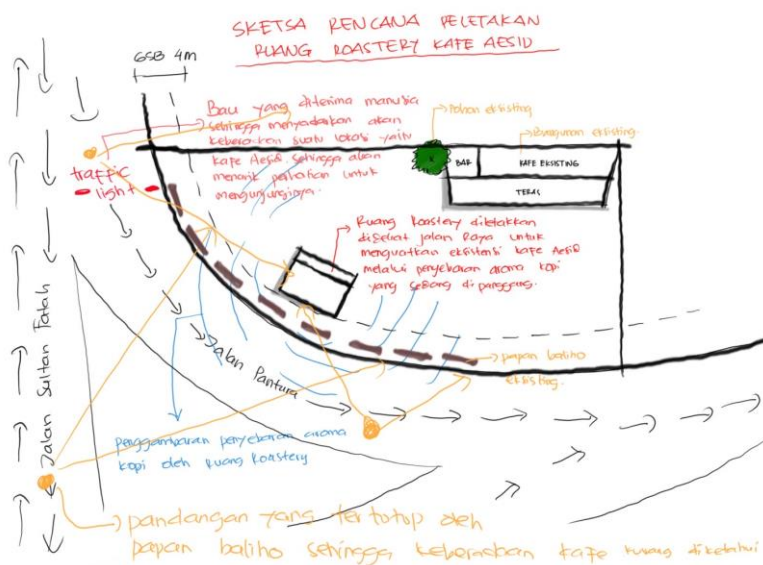 SKETSA RENCANA PELETAKAN
RUANG ROASTERY KAFE AESID
GSB 4m
Bau yang diterima manusia
sehingga menyadarkan akan
keberadaan suatu lokasi yaitu
kafe Aesid. sehingga akan
menarik perhatian untuk
mengunjunginya.
traffic
light
Pohon eksisting
Bangunan eksisting.
BAR
KAFE EKSISTING
TERAS
Ruang Roastery diletakkan
didekat jalan Raya untuk
menguatkan eksistensi kafe Aesid
melalui penyebaran aroma kopi
yang sedang dipanggang.
Jalan Sultan Fatah
Jalan Pantura
papan baliho
eksisting.
penggambaran penyebaran aroma
kopi oleh Ruang Roastery
pandangan yang tertotop oleh
papan baliho sehingga keberadaan kafe kurang diketahui